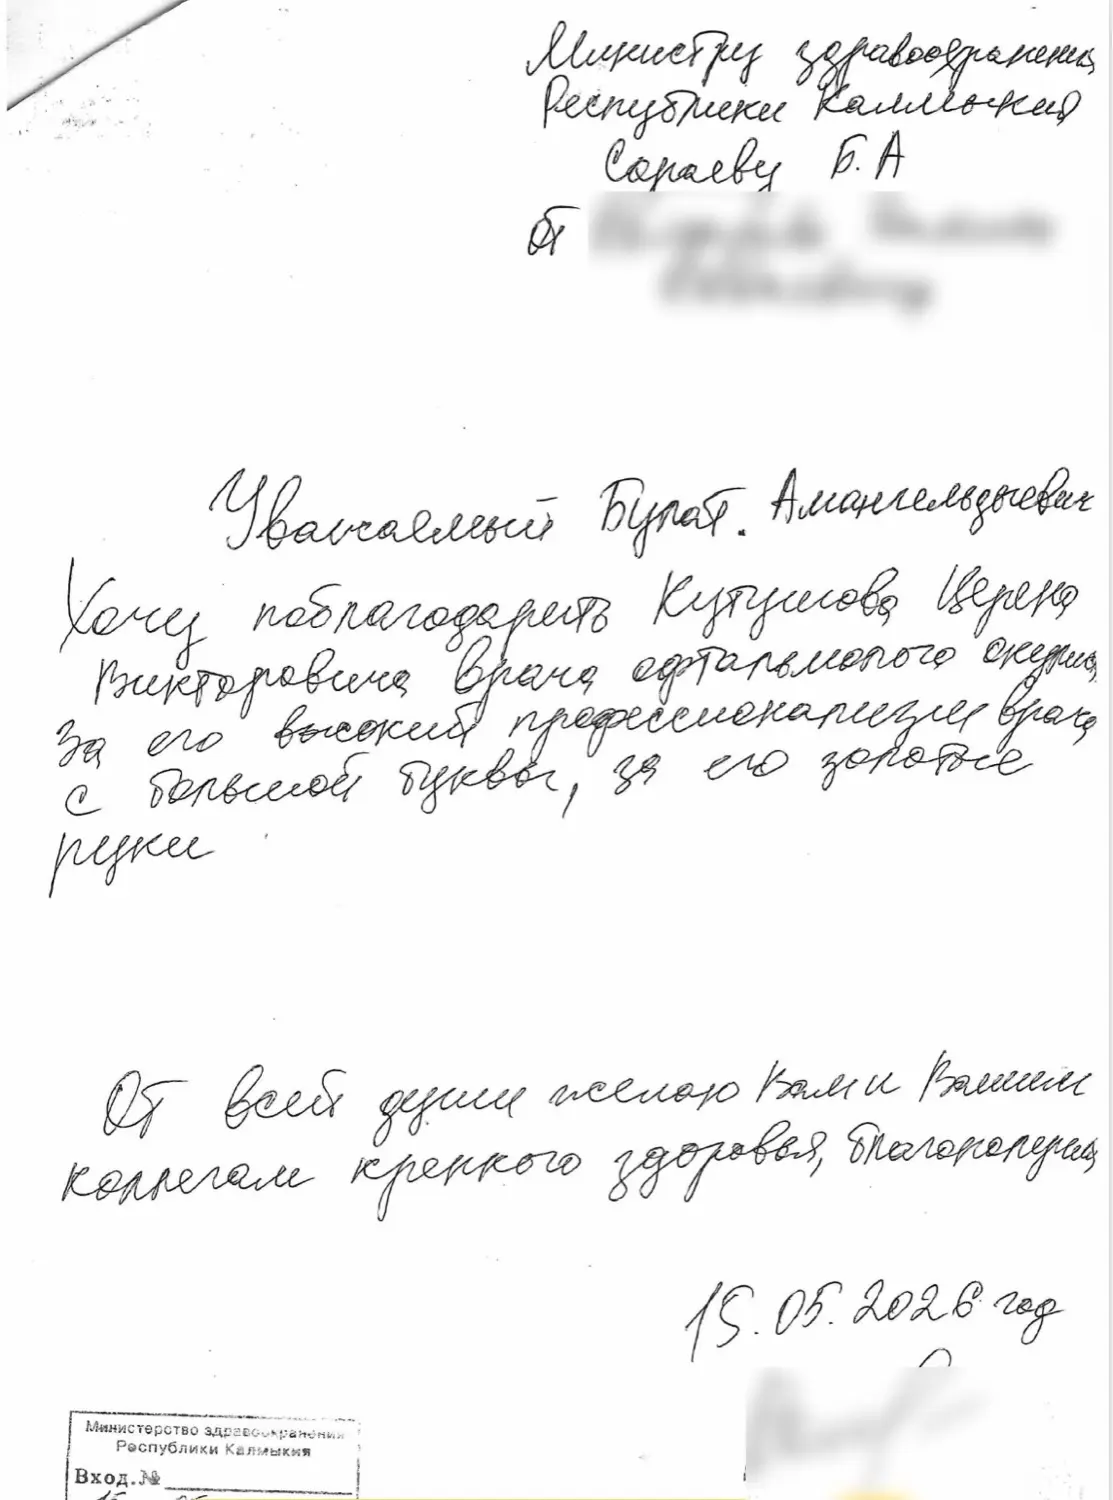 Министру здравоохранения
Республики Калмыкия
Сараеву Б.А
от
Уважаемый Булат. Амангельдыевич
Хочу поблагодарить Кутушова Церена
Викторовича врача офтальмолога
За его высокий профессионализм врача
с большой буквы, за его золотые
руки
От всей души желаю Вам и Вашим
коллегам крепкого здоровья, благополучия
15.05.2026 год
Министерство здравоохранения
Республики Калмыкия
Вход.№